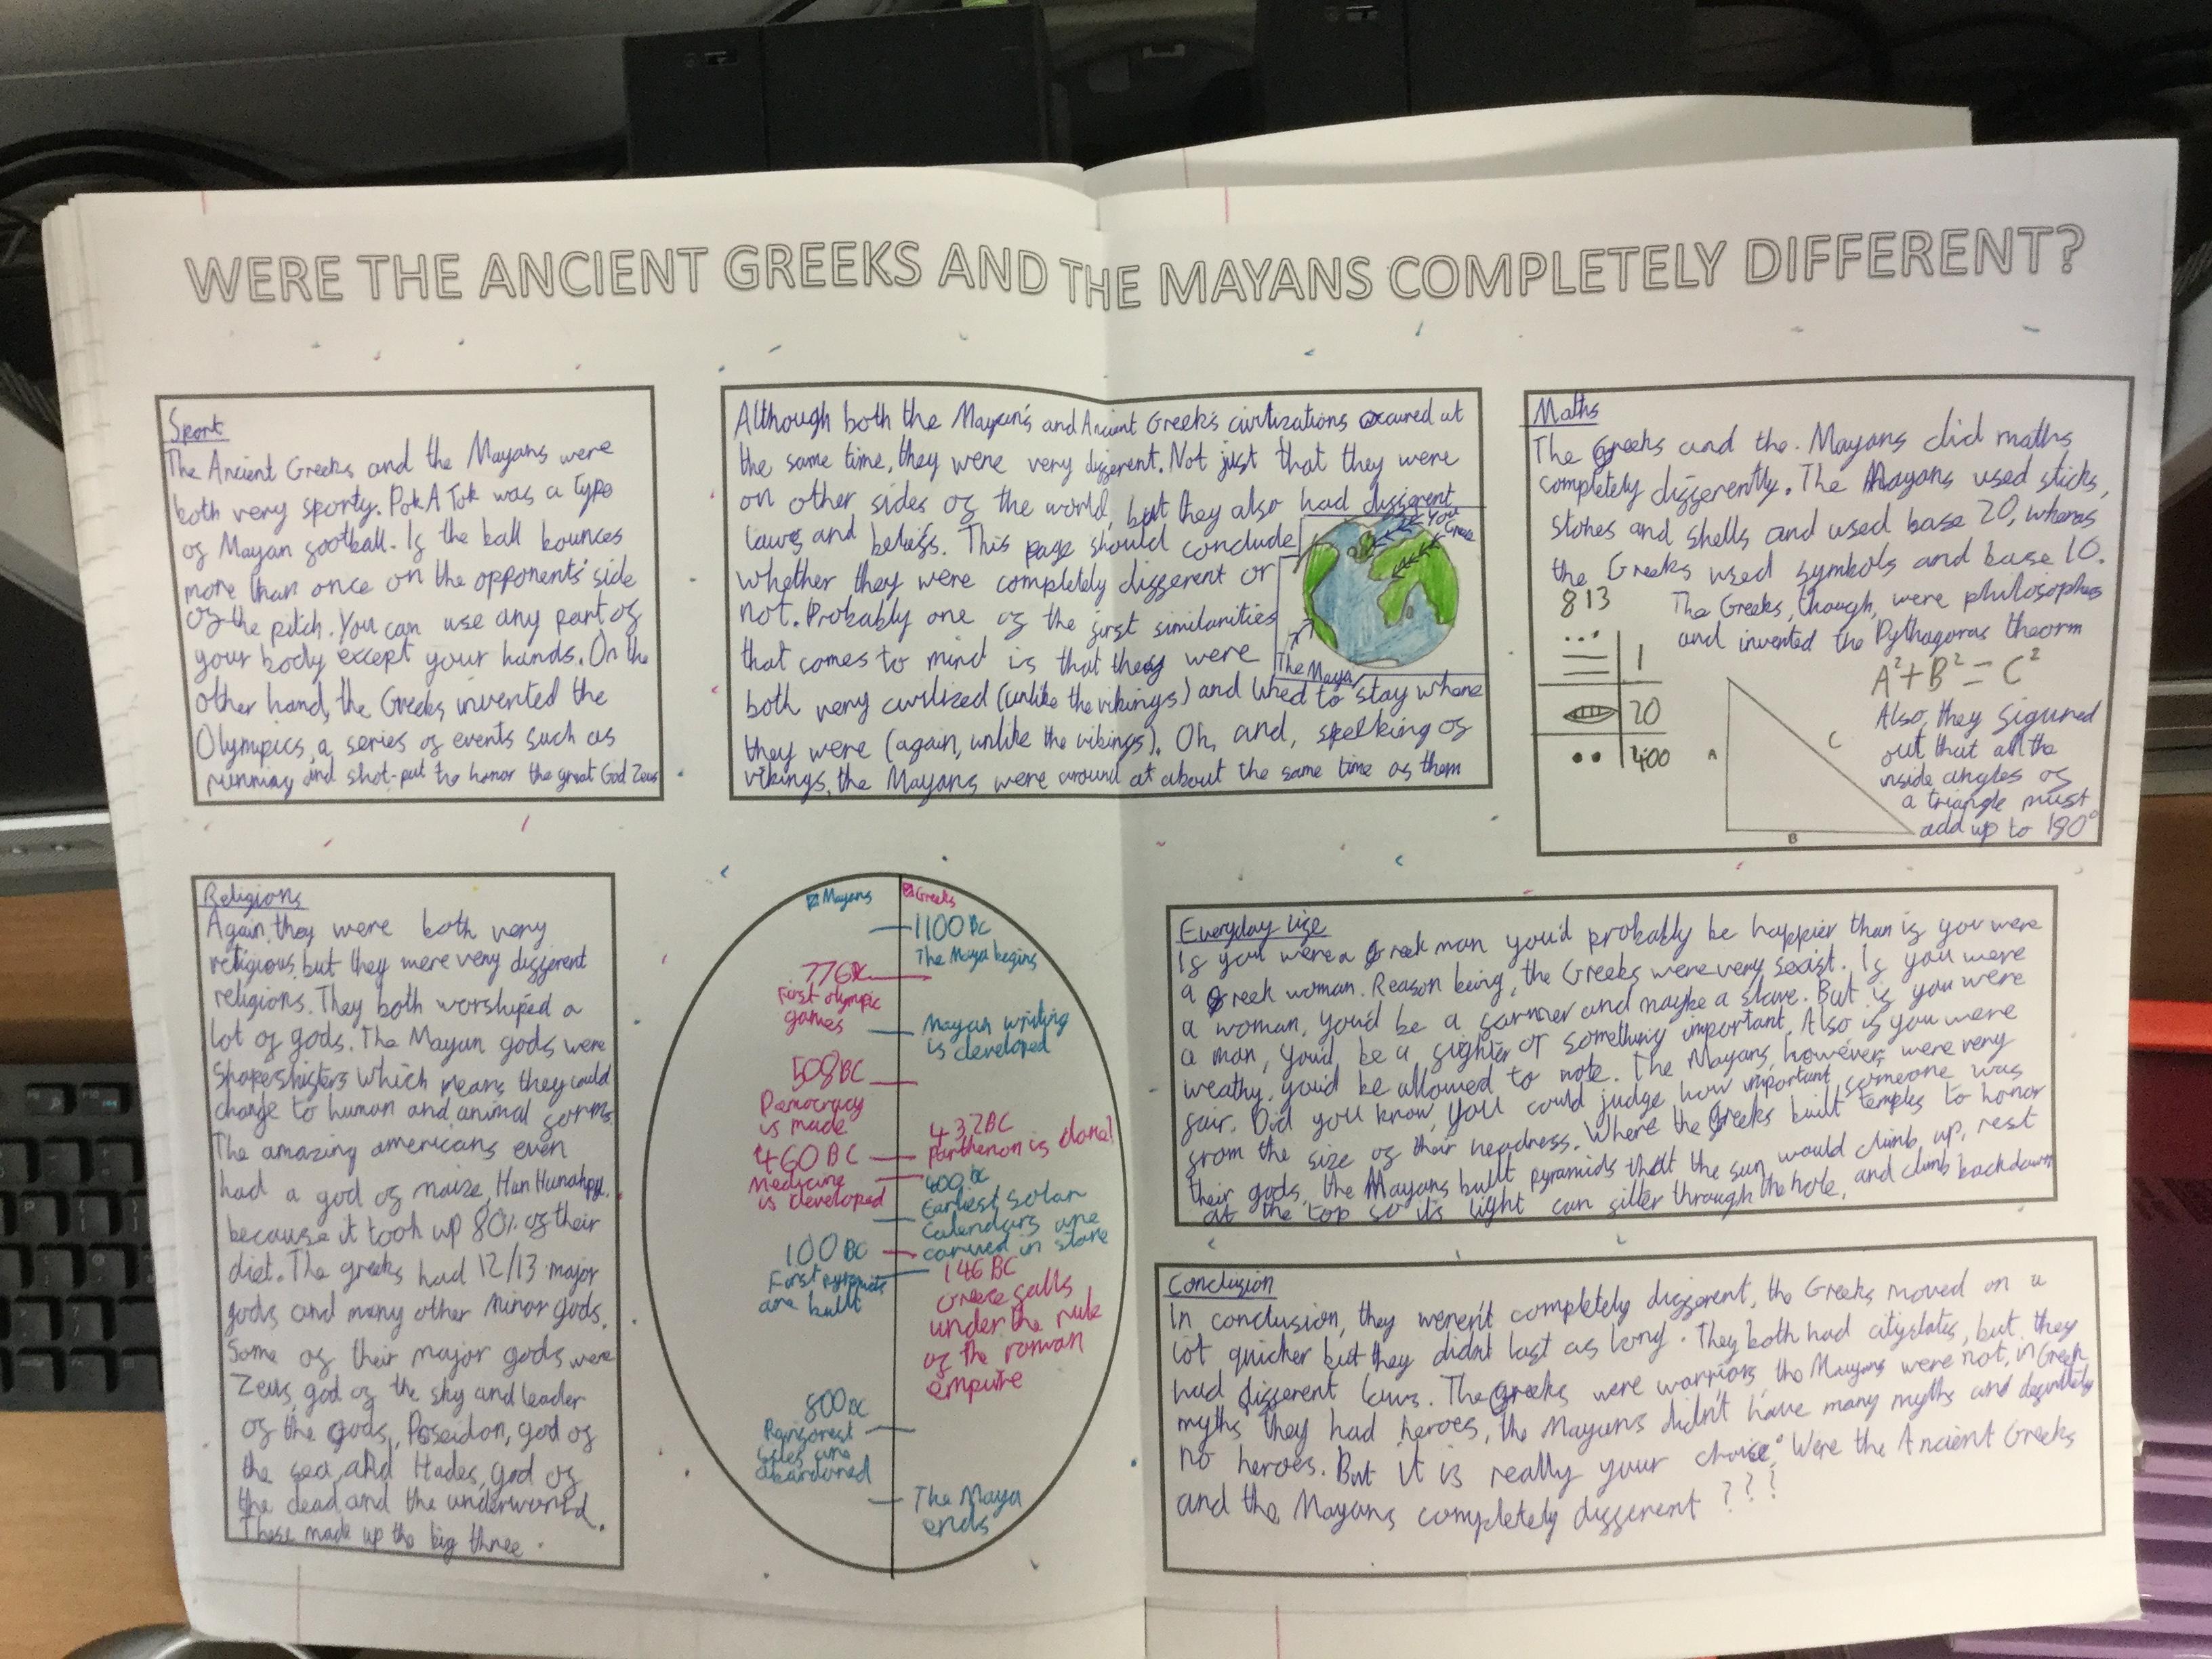 WERE THE ANCIENT GREEKS AND THE MAYANS COMPLETELY DIFFERENT?
Sport
The Ancient Greeks and the Mayans were
both very sporty. Pok A Tok was a type
of Mayan football. If the ball bounces
more than once on the opponents' side
of the pitch. You can use any part of
your body except your hands. On the
other hand, the Greeks invented the
Olympics, a series of events such as
running and shot-put to honor the great God Zeus
Although both the Mayan's and Ancient Greek's civilizations occured at
the same time, they were very different. Not just that they were
on other sides of the world, but they also had different
laws and beliefs. This page should conclude
whether they were completely different or
not. Probably one of the first similarities
that comes to mind is that they were
both very civilized (unlike the vikings) and liked to stay where
they were (again, unlike the vikings). Oh, and, speaking of
vikings, the Mayans were around at about the same time as them
The Maya
Maths
The Greeks and the Mayans did maths
completely differently. The Mayans used sticks,
stones and shells and used base 20, wheras
the Greeks used symbols and base 10.
813
The Greeks, though, were philosophers
and invented the Pythagoras theorm
A²+B²=C²
1
20
400
A
B
C
Also, they figured
out that all the
inside angles of
a triangle must
add up to 180°
Religions
Again, they were both very
religious, but they were very different
religions. They both worshiped a
lot of gods. The Mayan gods were
shapeshifters which means they could
change to human and animal forms.
The amazing americans even
had a god of maize, Hun Hunahpu,
because it took up 80% of their
diet. The greeks had 12/13 major
gods and many other minor gods.
Some of their major gods were
Zeus, god of the sky and leader
of the gods, Poseidon, god of
the sea, and Hades, god of
the dead and the underworld.
These made up the big three.
Mayans
Greeks
1100 BC
The Maya begins
776BC
First olympic
games
Mayan writing
is developed
508BC
Democracy
is made
432BC
parthenon is done!
460 BC
Medicine
is developed
400BC
Earliest solar
Calendars are
carved in stone
100 BC
First pyramids
are built
146 BC
Greece falls
under the rule
of the roman
empire
800BC
Rainforest
sites are
abandoned
The Maya
ends
Everyday life
If you were a Greek man you'd probably be happier than if you were
a Greek woman. Reason being, the Greeks were very sexist. If you were
a woman, you'd be a farmer and maybe a slave. But if you were
a man, you'd be a fighter or something important. Also if you were
weathy, you'd be allowed to vote. The Mayans, however, were very
fair. Did you know, you could judge how important someone was
from the size of their headress. Where the Greeks built temples to honor
their gods, the Mayans built pyramids that the sun would climb up, rest
at the top so its light can filter through the hole, and climb back down
Conclusion
In conclusion, they weren't completely different, the Greeks moved on a
lot quicker but they didn't last as long. They both had citystates, but they
had different laws. The Greeks were warriors, the Mayans were not, in Greek
myths they had heroes, the Mayans didn't have many myths and definitely
no heroes. But it is really your choise. Were the Ancient Greeks
and the Mayans completely different ???